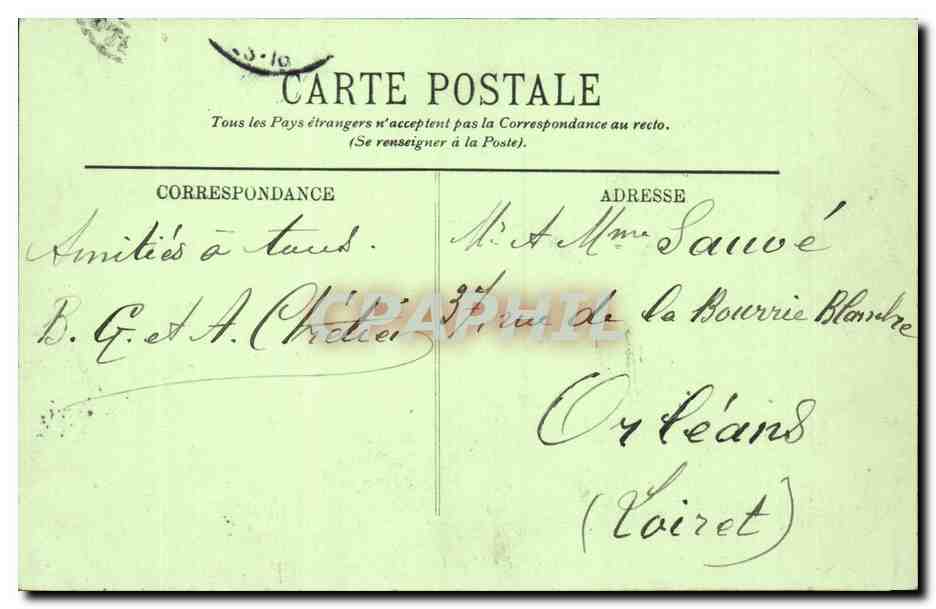 CARTE POSTALE
Tous les Pays étrangers n'acceptent pas la Correspondance au recto.
(Se renseigner à la Poste).
CORRESPONDANCE
Amitiés à tous.
B. G. et A.
ADRESSE
Mr A Mme Sauvé
37, rue de la Bourrie Blanche
Orléans
(Loiret)
CPAPHIL